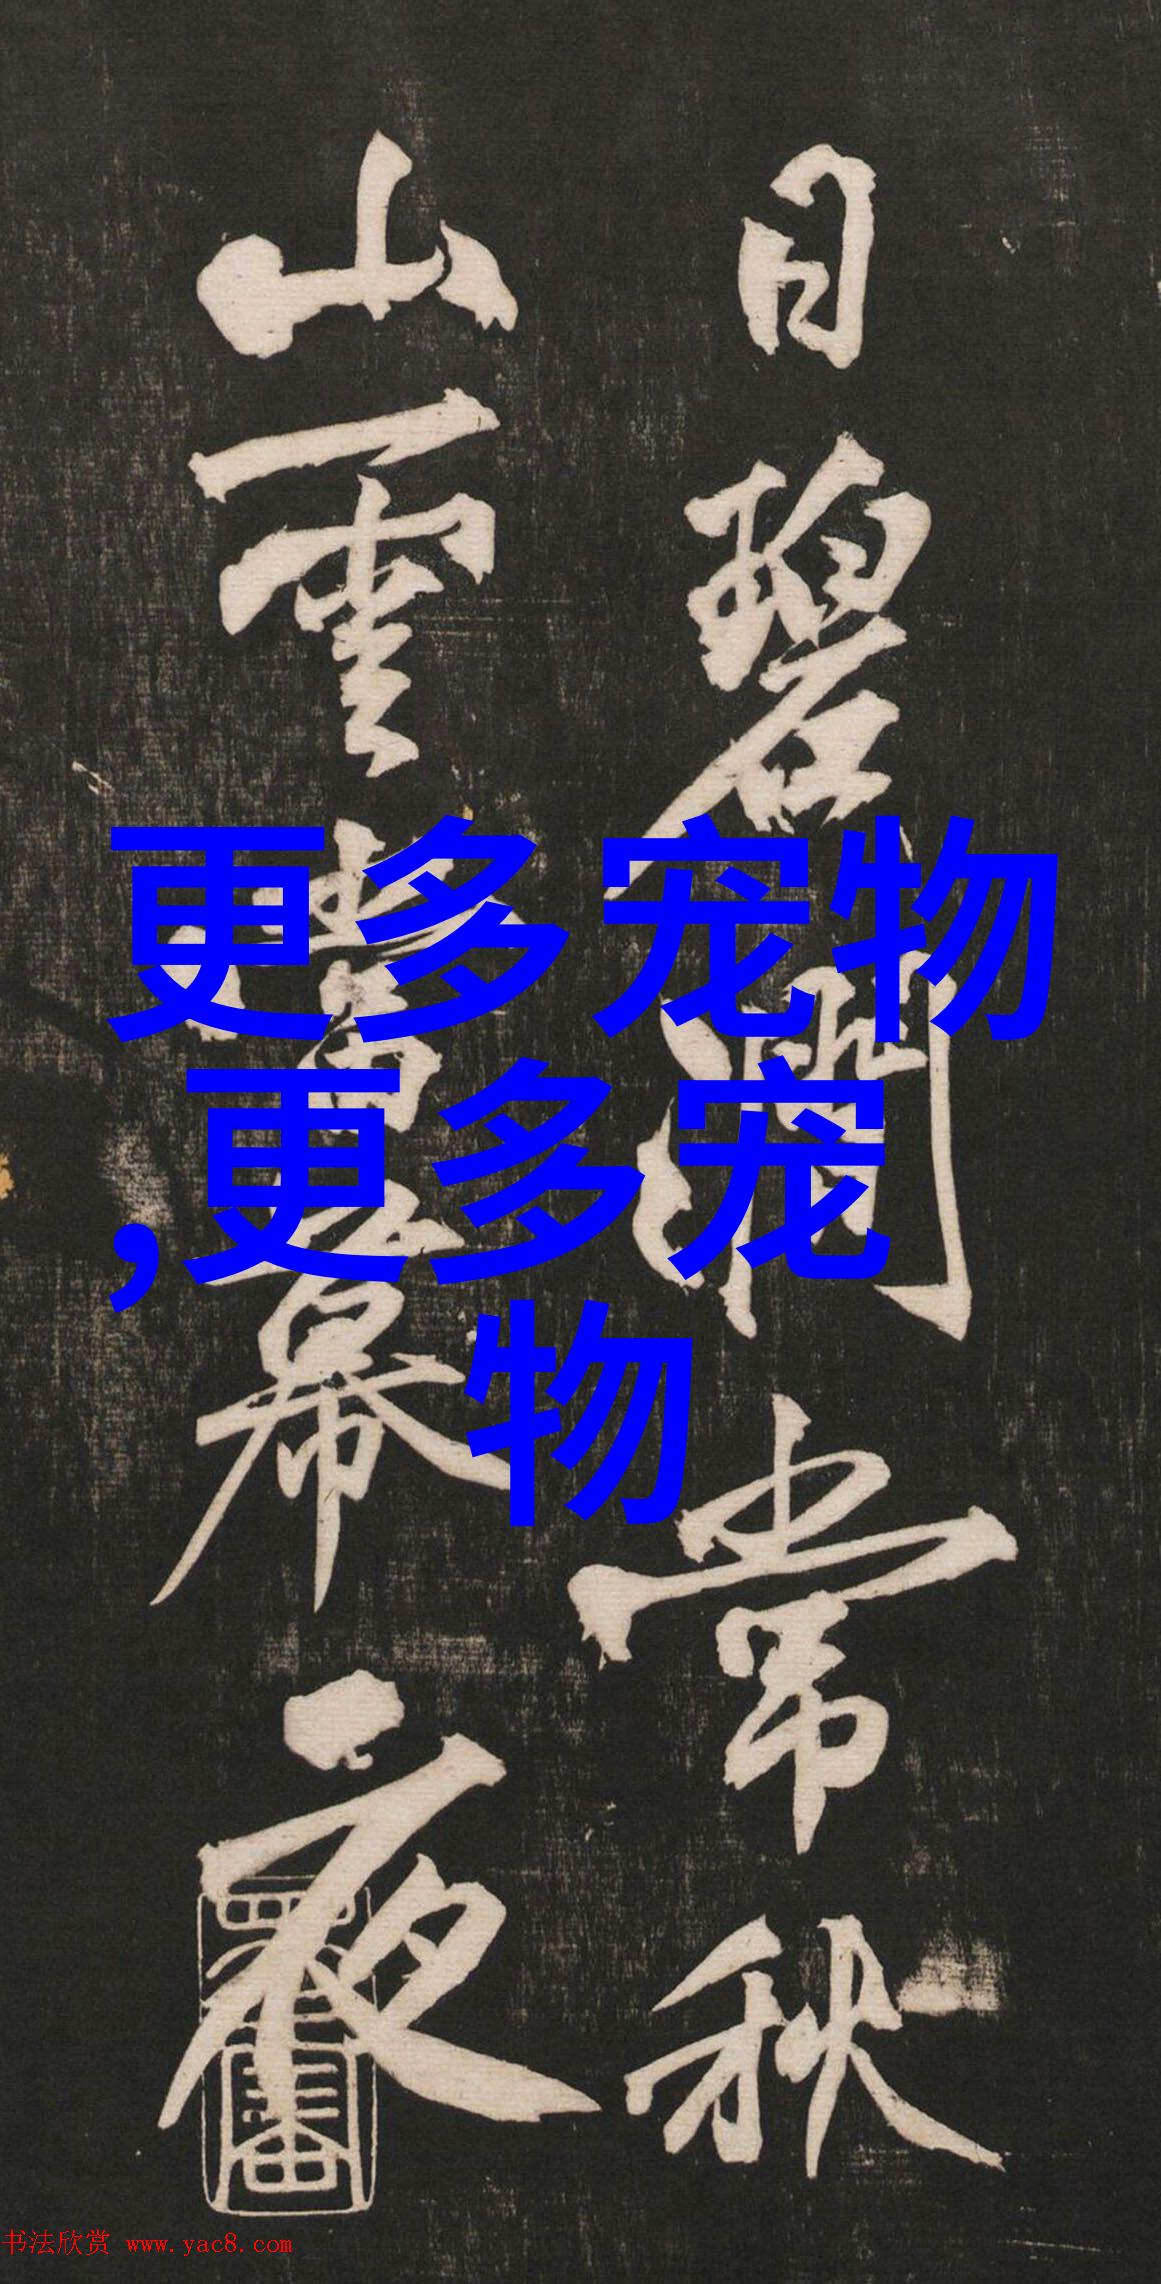 日碧澗常秋
山雲當幕夜
更多宠物
,更多宠
物
书法欣赏 www.yac8.com